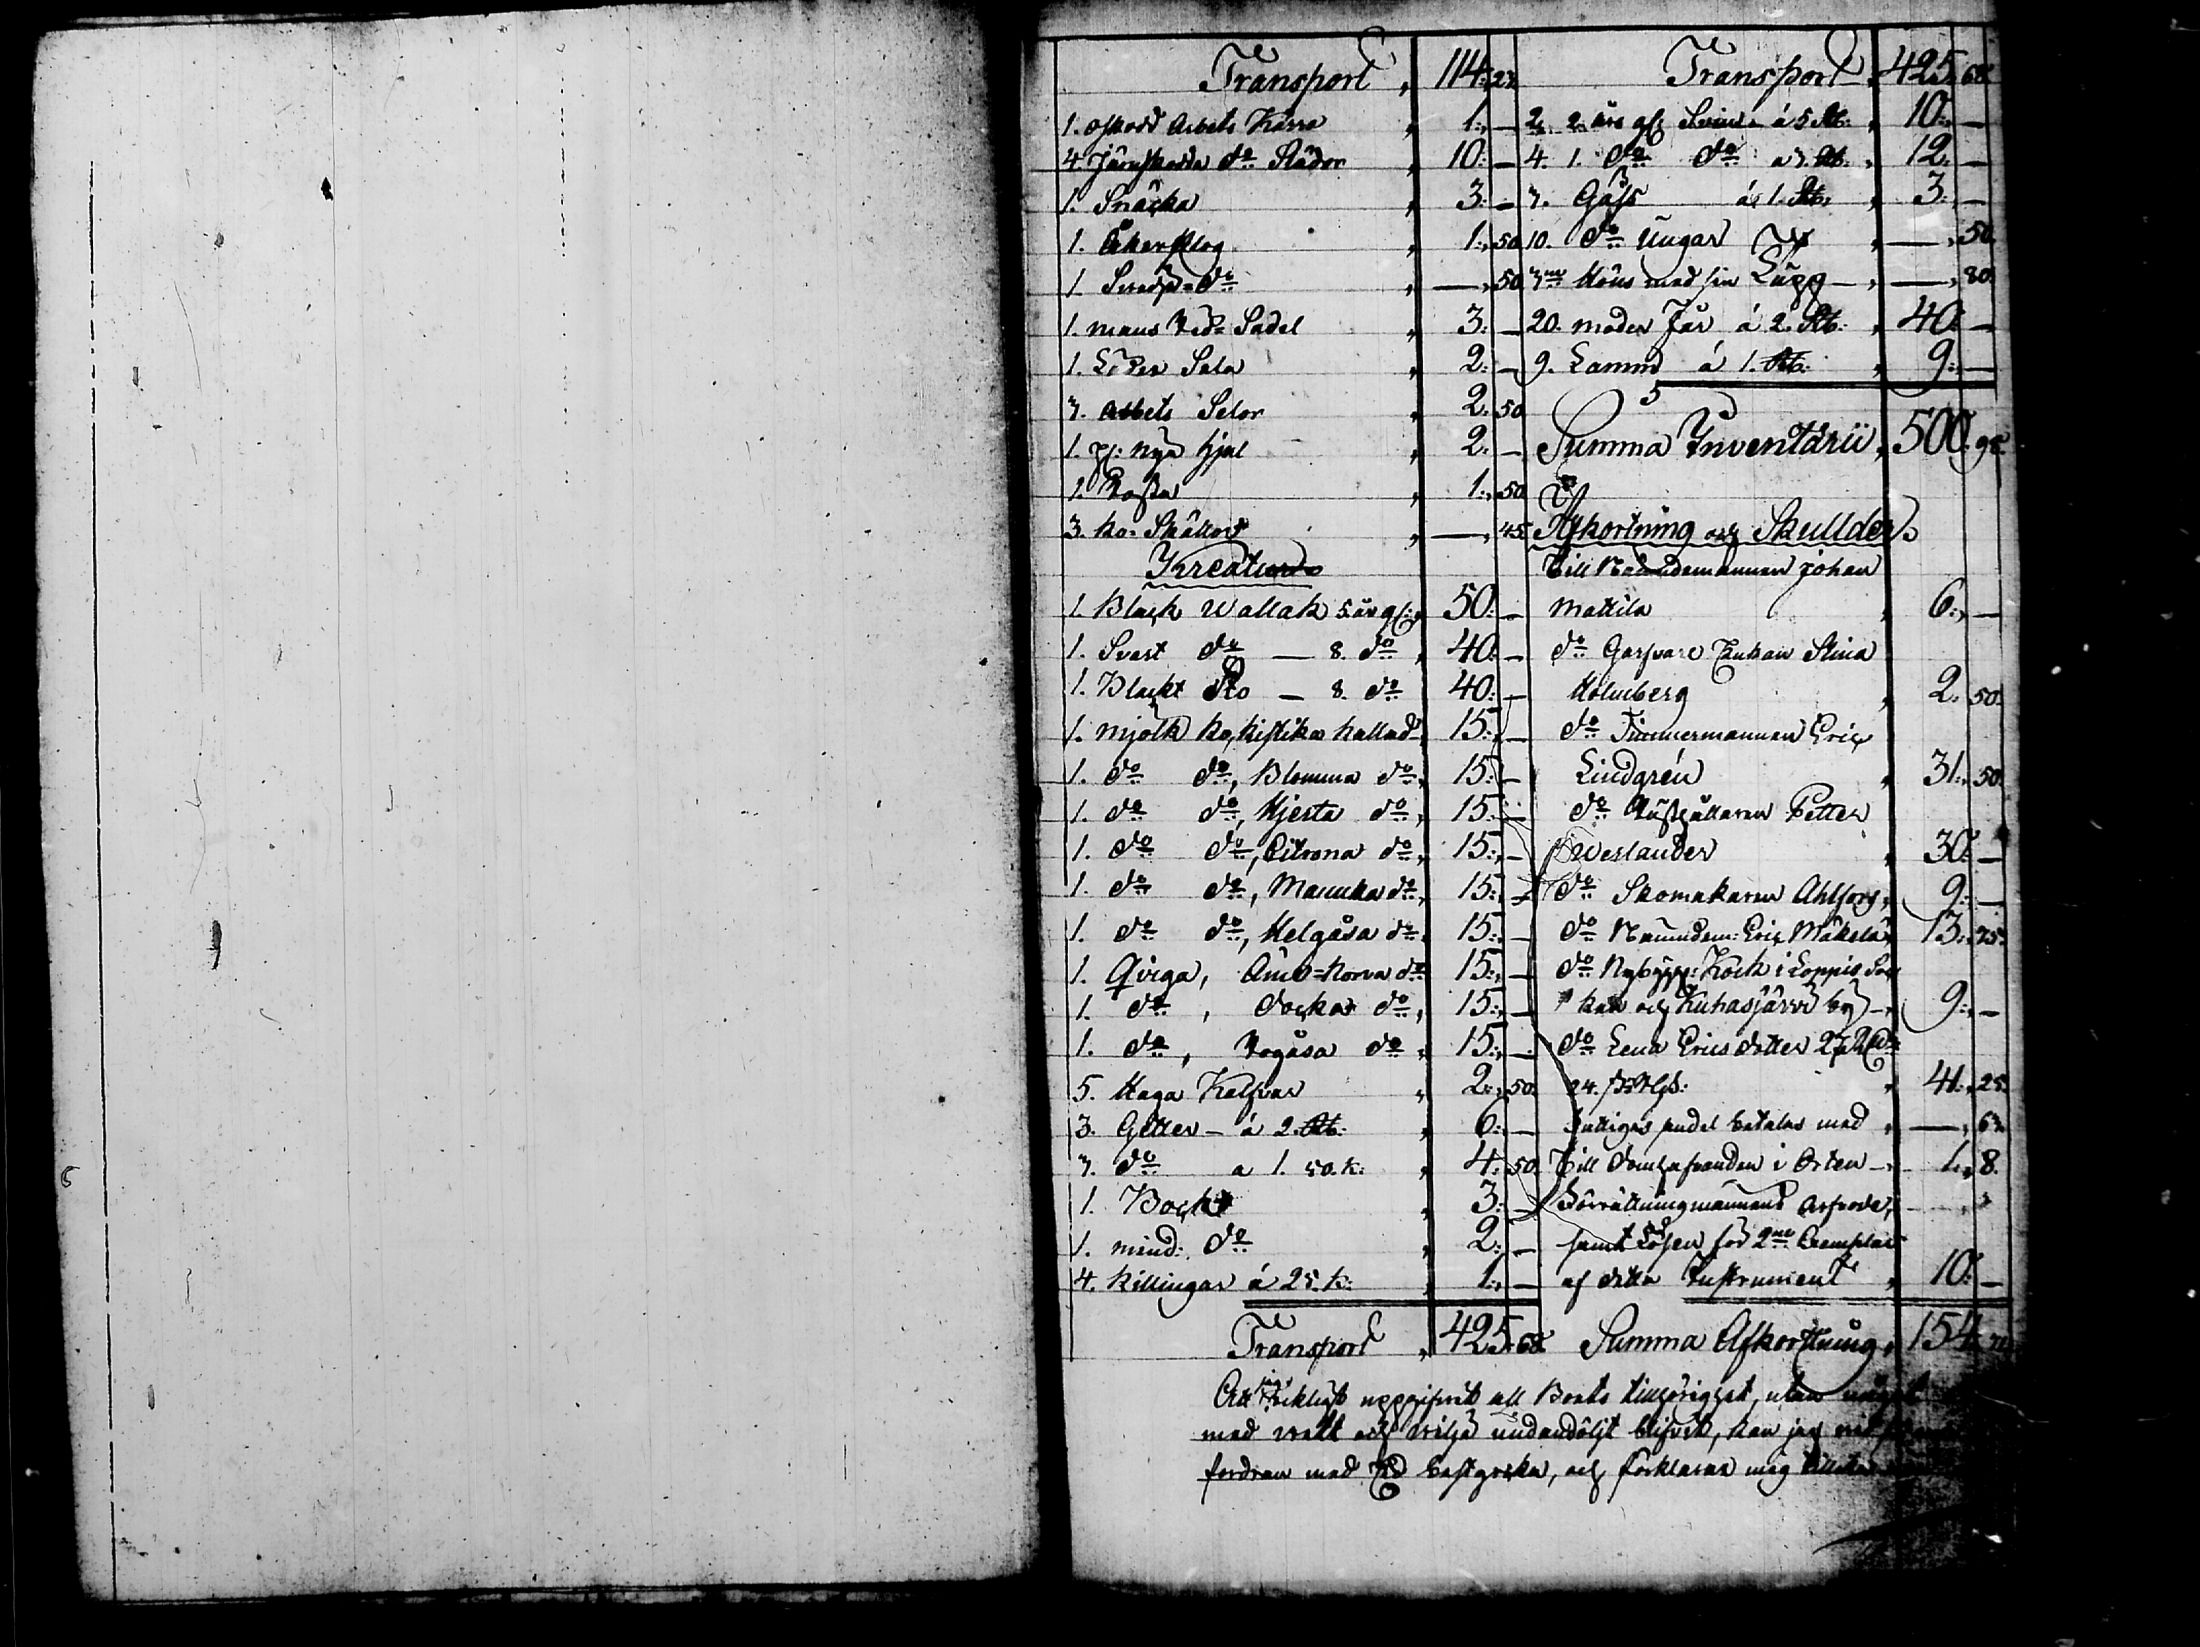 Transport 114. 23
1. oskodd Arbets Kärra 1. —
4 Järnskodda do Slädor 10. —
1. Snäcka 3. —
1. Åkerplog 1. 50
1 Sved-do — 50
1. mans Rid-Sadel 3. —
1. Läder Sela 2. —
3. Arbets Selor 2. 50
1. pr: nya hjul 2. —
1. 1. 50
3. ko-Skällor — 45
Kreatur
1. Black Wallak 5 år gl: 50. —
1. Svart do — 8. do 40. —
1. Blackt Sto — 8. do 40. —
1. mjölk ko, kallad 15. —
1. do do, Blomma do 15. —
1. do do, Hjerta do 15. —
1. do do, Citrona do 15. —
1. do do, Mansika do 15. —
1. do do, Helgåsa do 15. —
1. Qviga, do 15. —
1. do, Docka do 15. —
1. do, do 15. —
5. Kalfvar 2. 50
3. Getter — á 2. Rb: 6. —
3. do a 1. 50. k: 4. 50
1. Bock 3. —
1. mind: do 2. —
4. Killingar á 25. k: 1. —
Transport 425. 68
Transport 425. 68
2. 2. års gl. Svin á 5 Rb: 10. —
4. 1. do do a 3. Rb: 12. —
3. Gåss á 1. Rb. 3. —
10. do Ungar — 50
3ne Höns med sin Tupp — 80
20. moder Får á 2. Rb: 40. —
9. Lamm á 1. Rb: 9. —
Summa Inventarii 500. 98
Afkortning och Skullder
Till Nämndemannen Johan
Mattila 6. —
do Garfvare Enkan Stina
Holmberg 2. 50
do Timmermannen Eric
Lindgrén 31. 50
do Petter
Weslander 30. —
do Skomakaren Ahlfors 9. —
do Nämndem: Eric Mäkelä 13. 25
do Nybygg: Kock i Loppis Soc
ken och Kuhasjärvi by — 9. —
do Lena Ericsdotter
24. 41. 25
Fattiges andel betalas med — 63
Till i Orten 1. 8.
Förrättningsmännens Arfvode,
samt Lösen för 2ne Exemplar
af detta Instrument 10. —
Summa Afkortning 154.
Att jag riktigt uppgifvit all Boets tillhörighet, utan något
med vett och vilja undandöljt blifvit, kan jag
fordran med Ed bestyrka, och förklarar mig